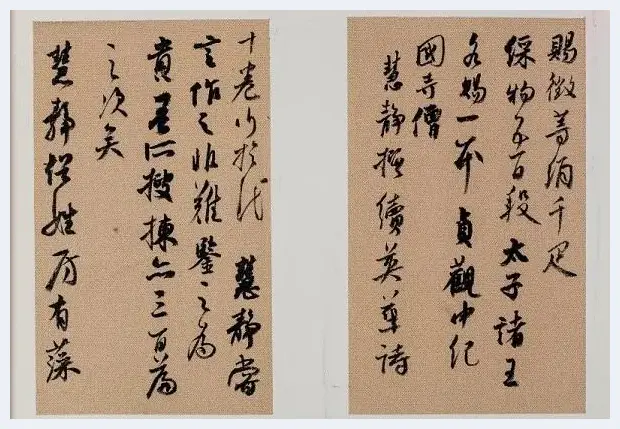 賜徵等絹千疋
綵物五百段太子諸王
各賜一本貞觀中紀
國寺僧
慧靜撰續英華詩
十卷行於代慧靜嘗
言作之非難鑒之為
貴吾所搜揀亦三百篇
之次矣
慧靜俗姓房有藻